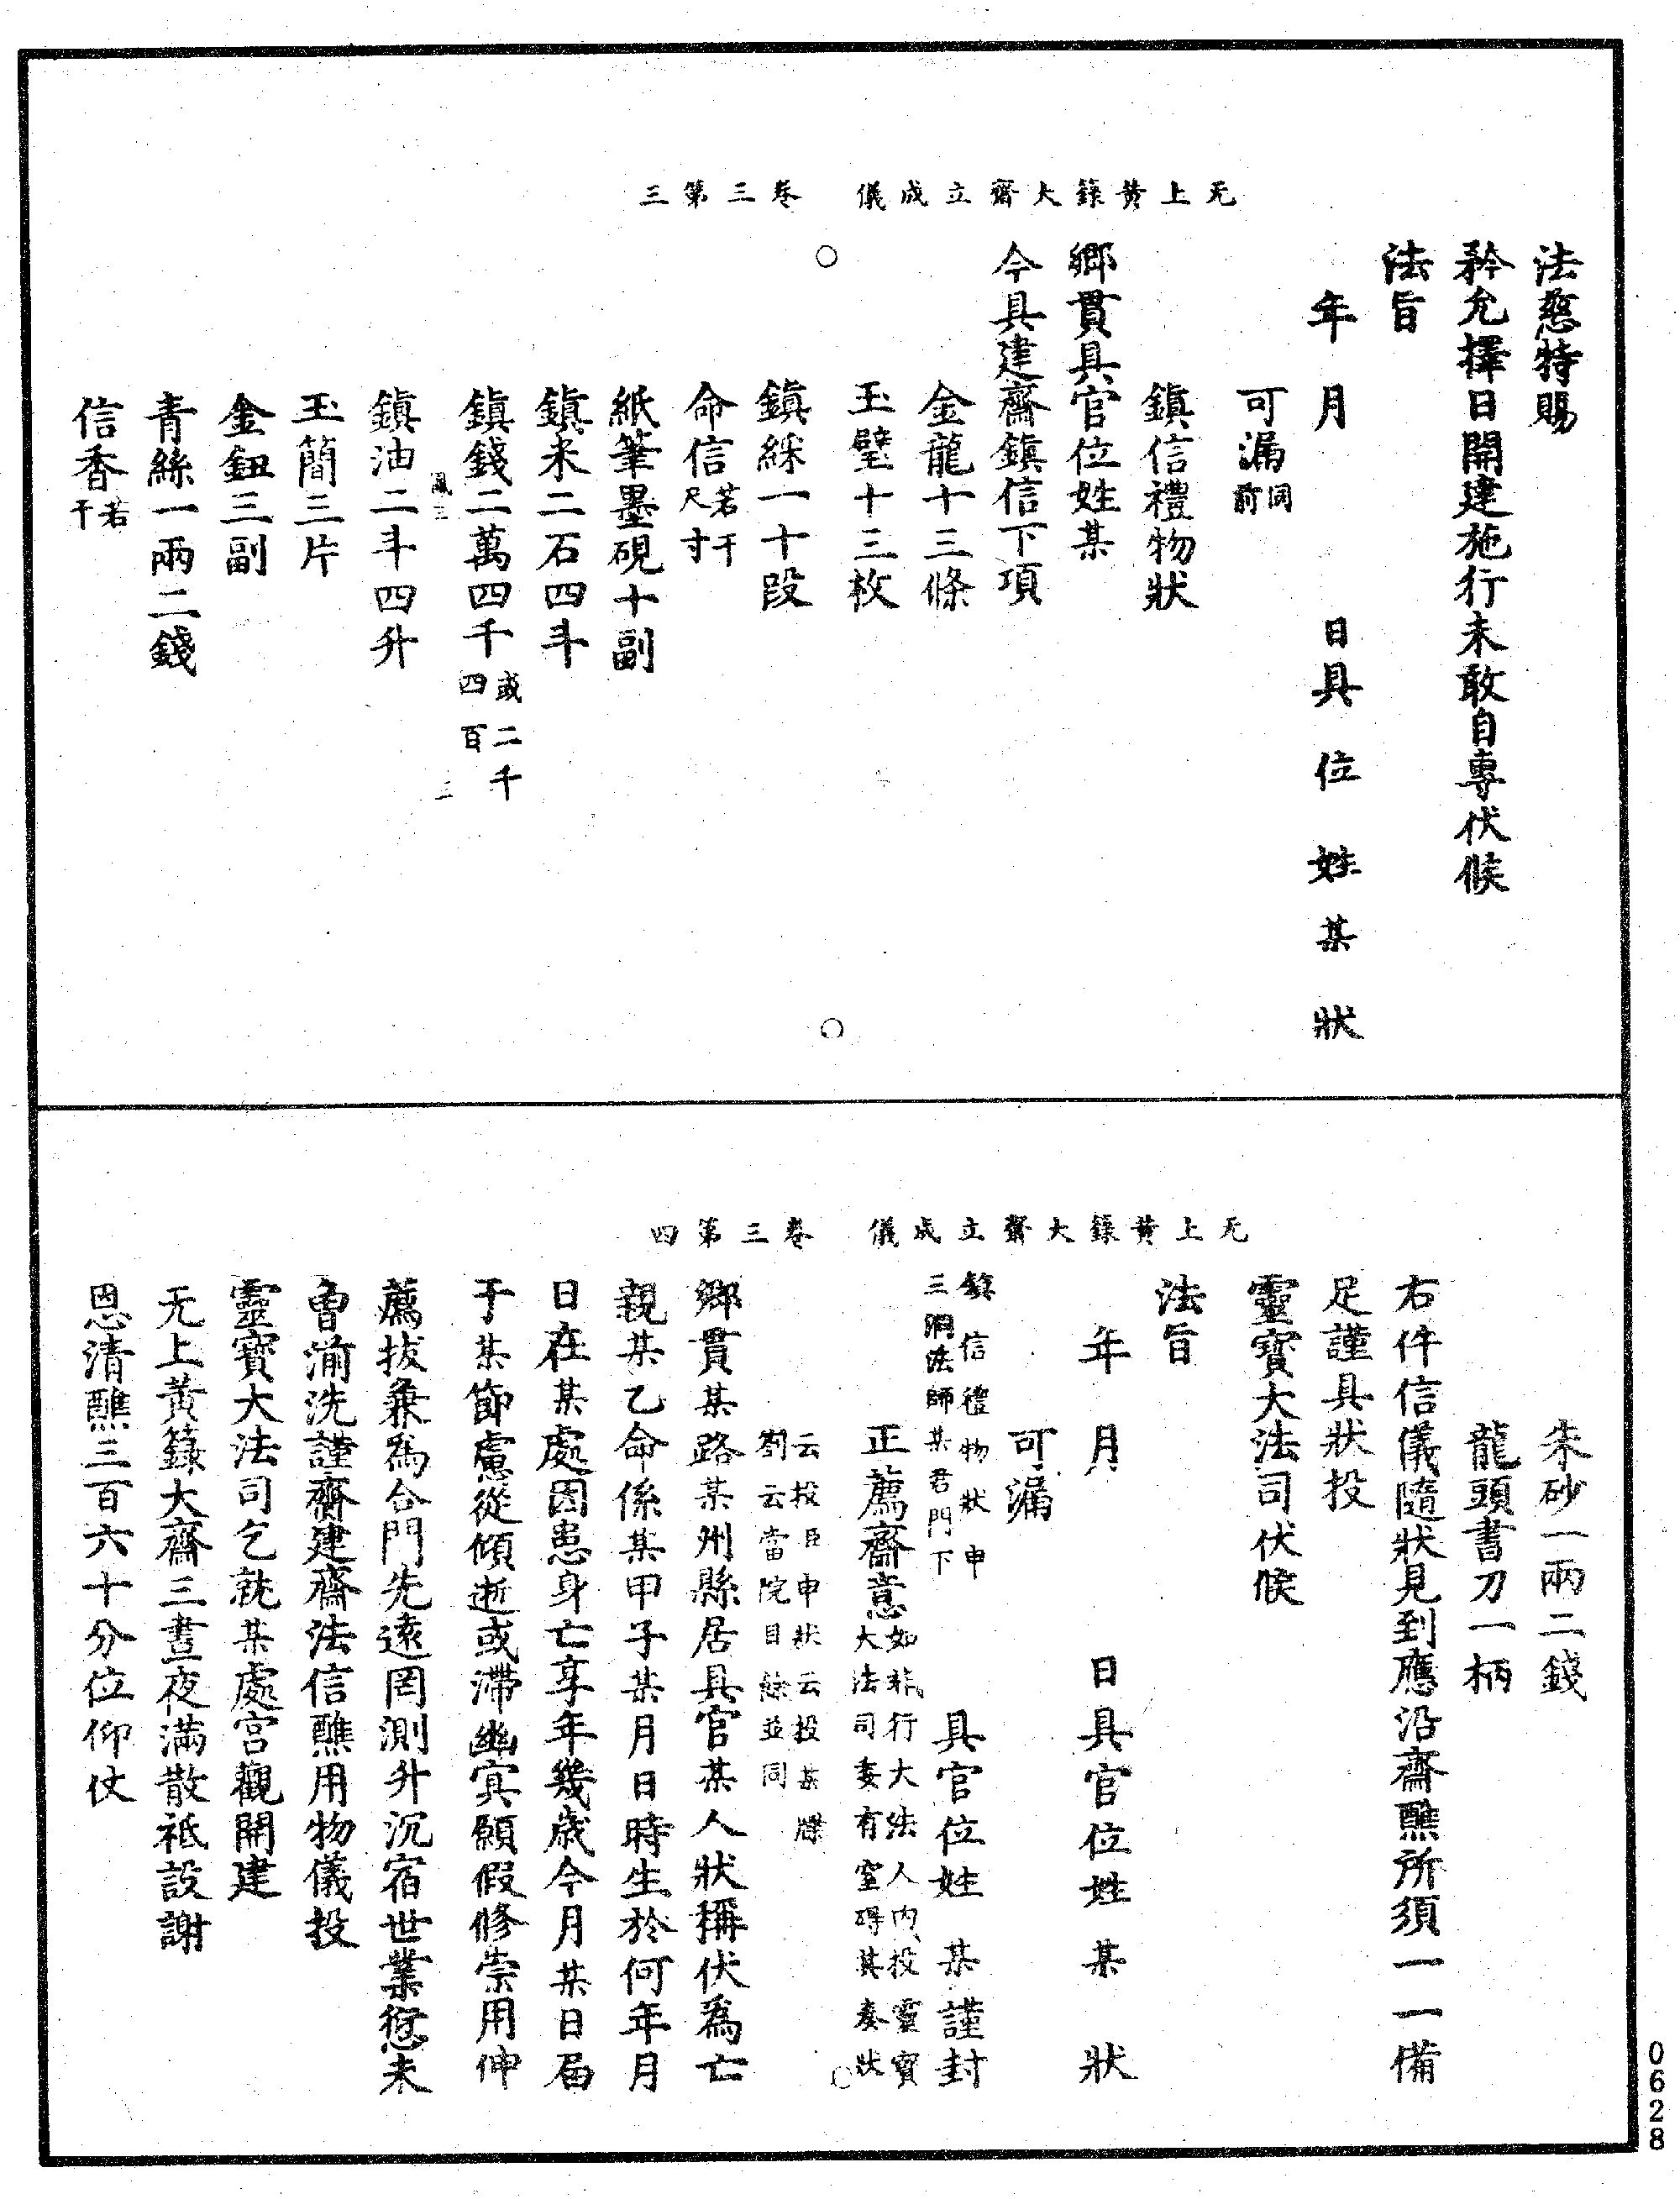 无上黃籙大齋立成儀　卷三第三
法慈特賜
矜允擇日開建施行未敢自專伏候
法旨
年　月　　日具位姓某狀
可漏同前
鎮信禮物狀
鄉貫具官位姓某
今具建齋鎮信下項
金龍十三條
玉璧十三枚
鎮綵一十段
命信若干尺寸
紙筆墨硯十副
鎮米二石四斗
鎮錢二萬四千或二千四百
鎮油二斗四升
玉簡三片
金鈕三副
青絲一兩二錢
信香若干
无上黃籙大齋立成儀　卷三第四
朱砂一兩二錢
龍頭書刀一柄
右件信儀隨狀見到應沿齋醮所須一一備
足謹具狀投
靈寶大法司伏候
法旨
年　月　　日具官位姓某　狀
可漏
鎮信禮物狀申
三洞法師某君門下　　具官位姓某謹封
正薦齋意如非行大法人內投靈寶
大法司奏有窒碍其奏狀
云投臣申狀云投某牒
劄云當院目餘並同
鄉貫某路某州縣居具官某人狀稱伏爲亡
親某乙命係某甲子某月日時生於何年月
日在某處因患身亡享年幾歲今月某日届
于某節慮從傾逝或滯幽冥願假修崇用伸
薦拔兼爲合門先遠罔測升沉宿世業愆未
曾湔洗謹齎建齋法信醮用物儀投
靈寶大法司乞就某處宮觀開建
无上黃籙大齋三晝夜滿散祗設謝
恩清醮三百六十分位仰仗
0628